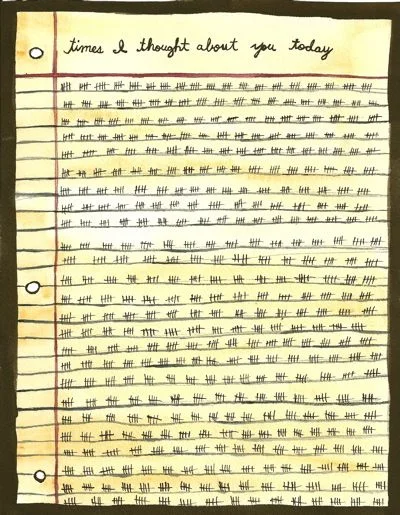 times I thought about you today